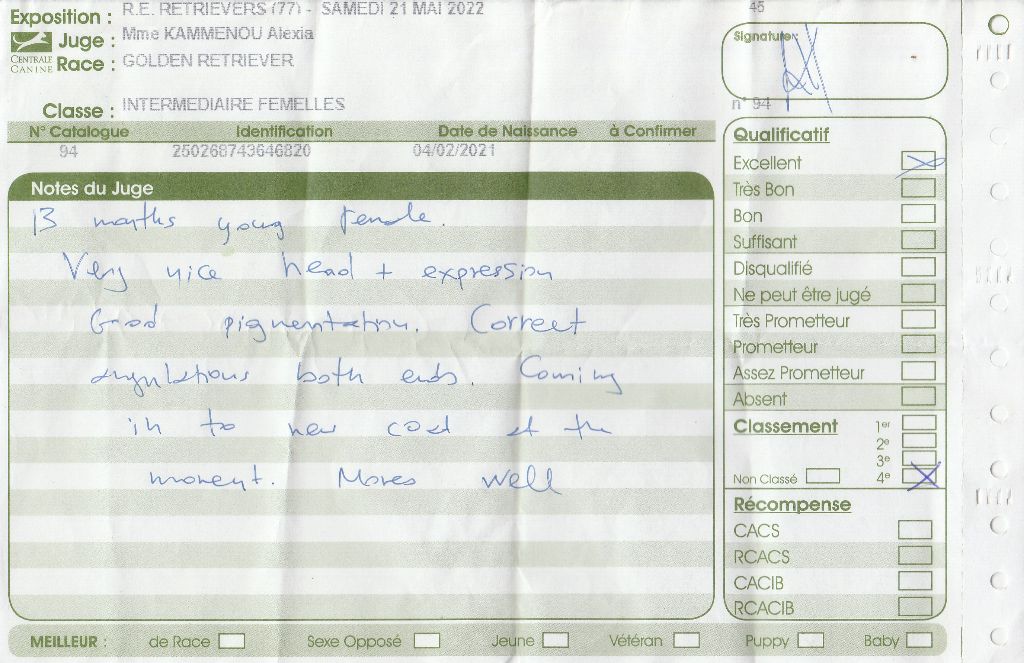 Exposition : R.E. RETRIEVERS (77) - SAMEDI 21 MAI 2022
CENTRALE CANINE
Juge : Mme KAMMENOU Alexia
Race : GOLDEN RETRIEVER
Classe : INTERMEDIAIRE FEMELLES
N° Catalogue Identification Date de Naissance à Confirmer
94 250268743646820 04/02/2021
Notes du Juge
13 months young female.
Very nice head + expression
Good pigmentation. Correct
angulations both ends. Coming
in to new coat at the
moment. Moves well
45
Signature :
n° 94
Qualificatif
Excellent
Très Bon
Bon
Suffisant
Disqualifié
Ne peut être jugé
Très Prometteur
Prometteur
Assez Prometteur
Absent
Classement 1er
2e
3e
Non Classé 4e
Récompense
CACS
RCACS
CACIB
RCACIB
MEILLEUR : de Race Sexe Opposé Jeune Vétéran Puppy Baby